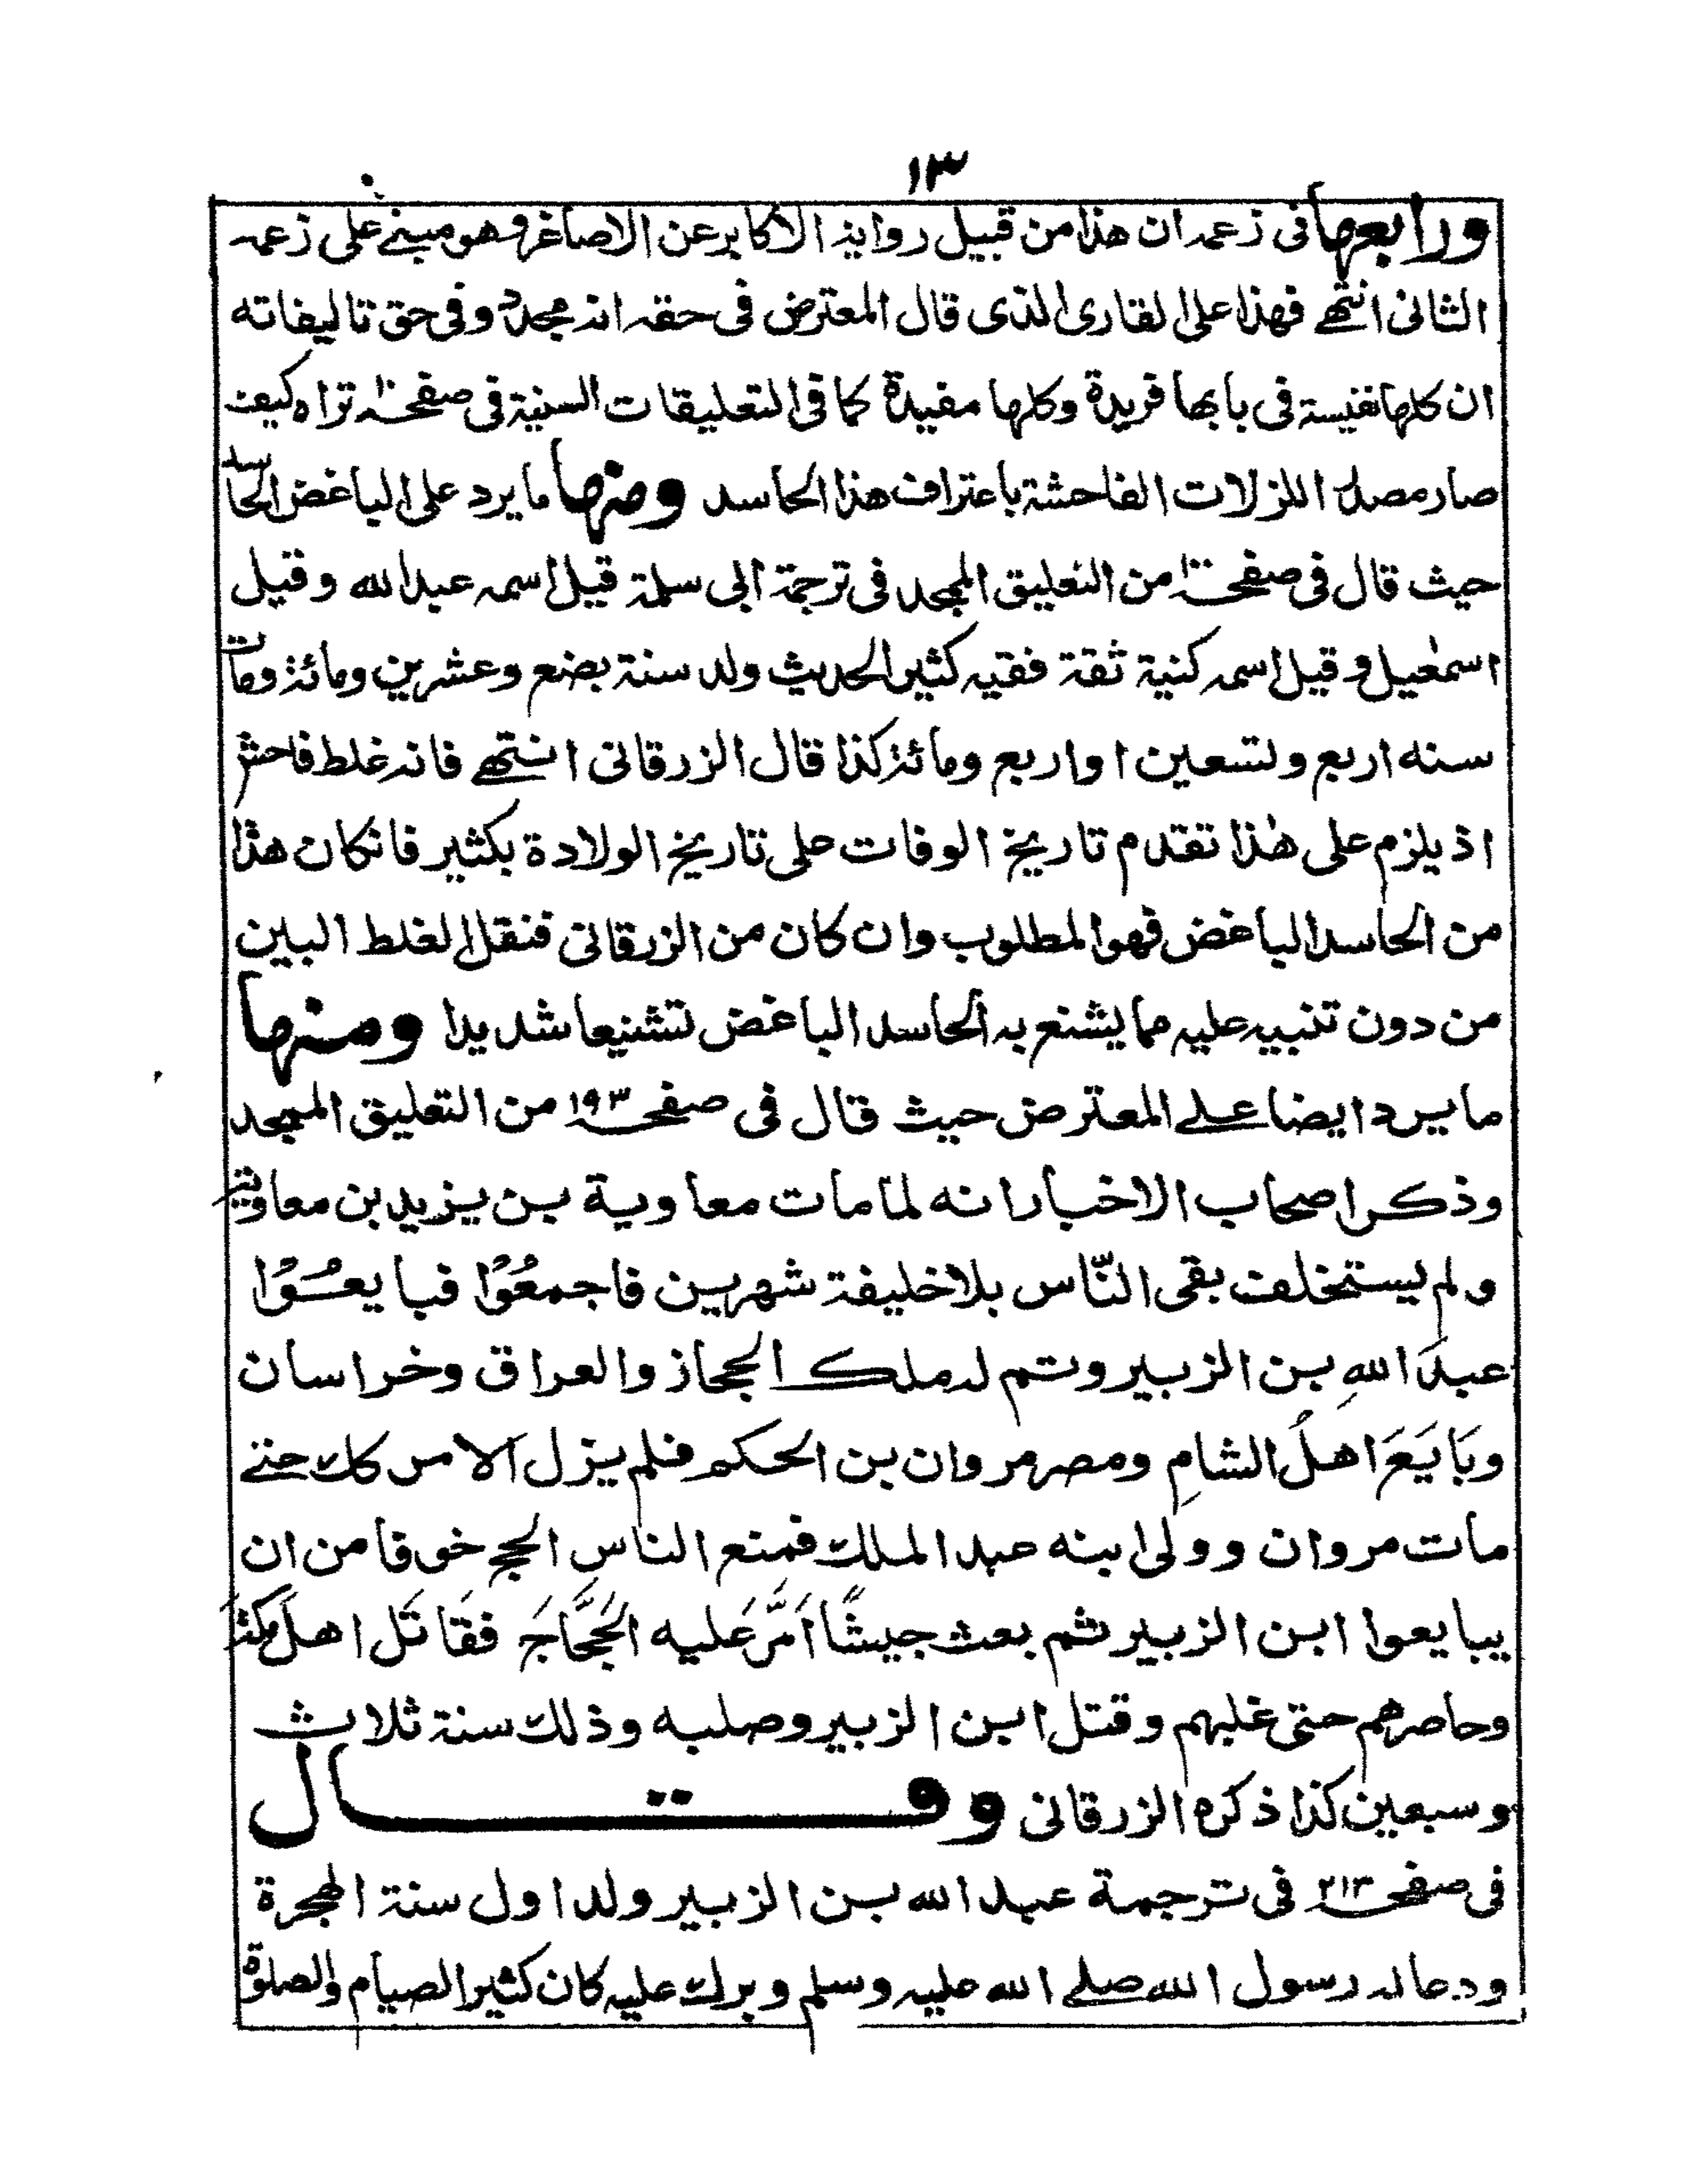 ١٣
ورابعها فى زعمه ان هذا من قبيل رواية الاكابر عن الاصاغر وهو مبنے على زعمه
الثانى انتھے فهذا على القارى الذى قال المعترض فى حقه انه مجدد وفى حق تاليفاته
ان كلها نفيسة فى بابها فريدة وكلها مفيدة كما فى التعليقات السنية فى صفحة تراه كيف
صار مصدر اللزلات الفاحشة باعتراف هذا الحاسد ومنها ما يرد على الباغض الحاسد
حيث قال فى صفحة من التعليق الممجد فى ترجمة ابى سلمة قيل اسمه عبد الله وقيل
اسمٰعيل وقيل اسمه كنية ثقة فقيه كثير الحديث ولد سنة بضع وعشرين ومائة ومات
سنه اربع وتسعين او اربع ومائة كذا قال الزرقانى انتھے فانه غلط فاحش
اذ يلزم على هٰذا تقدم تاريخ الوفات على تاريخ الولادة بكثير فانكان هذا
من الحاسد الباغض فهو المطلوب وان كان من الزرقانى فنقل الغلط البين
من دون تنبيه عليه مما يشنع به الحاسد الباغض تشنيعا شديدا ومنها
ما يرد ايضا علے المعترض حيث قال فى صفحة ١٩٣ من التعليق الممجد
وذكر اصحاب الاخبار انه لما مات معاوية بن يزيد بن معاوية
ولم يستخلف بقى النّاس بلا خليفة شهرين فاجمعُوْا فبايعُوْا
عبدَ اللهِ بن الزبير وتم له ملك الحجاز والعراق وخراسان
وبَايَعَ اهلُ الشامِ ومصر مروان بن الحكم فلم يزل الامر كذلك حتے
مات مروان وولى ابنه عبد الملك فمنع الناس الحج خوفا من ان
يبايعوا ابن الزبير ثم بعث جيشًا اَمَّرَ عَليه الحَجَّاجَ فقَاتَل اهلَ مكة
وحاصرهم حتى غلبهم وقتل ابن الزبير وصلبه وذلك سنة ثلاث
وسبعين كذا ذكره الزرقانى وقال
فى صفحة ٢١٣ فى ترجمة عبد الله بن الزبير ولد اول سنة الهجرة
ودعا له رسول الله صلے الله عليه وسلم وبرك عليه كان كثير الصيام والصلوة